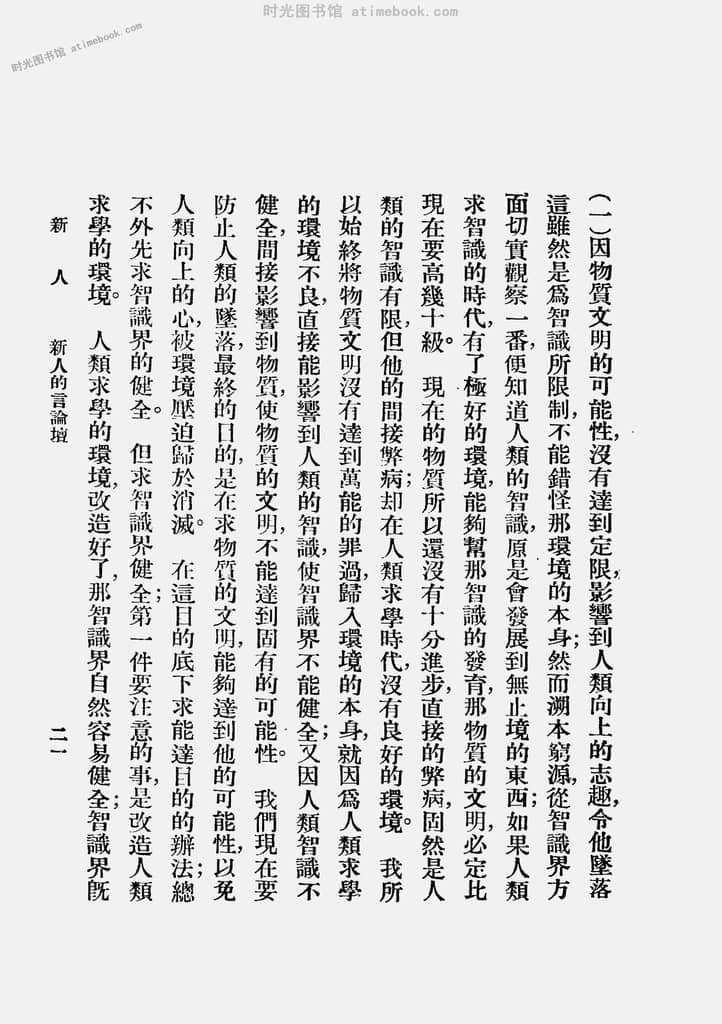 时光图书馆 atimebook.com
时光图书馆 atimebook.com
(一)因物質文明的可能性,沒有達到定限,影響到人類向上的志趣,令他墜落
這雖然是爲智識所限制,不能錯怪那環境的本身;然而溯本窮源,從智識界方
面切實觀察一番,便知道人類的智識,原是會發展到無止境的東西;如果人類
求智識的時代,有了極好的環境,能夠幫那智識的發育,那物質的文明,必定比
現在要高幾十級。 現在的物質所以還沒有十分進步,直接的弊病,固然是人
類的智識有限,但他的間接弊病;却在人類求學時代,沒有良好的環境。 我所
以始終將物質文明沒有達到萬能的罪過,歸入環境的本身,就因爲人類求學
的環境不良,直接能影響到人類的智識,使智識界不能健全;又因人類智識不
健全,間接影響到物質,使物質的文明,不能達到固有的可能性。 我們現在要
防止人類的墜落,最終的目的,是在求物質的文明,能夠達到他的可能性,以免
人類向上的心,被環境壓迫歸於消滅。 在這目的底下求能達目的的辦法;總
不外先求智識界的健全。 但求智識界健全;第一件要注意的事,是改造人類
求學的環境。 人類求學的環境,改造好了,那智識界自然容易健全;智識界既
新 人 新人的言論壇 二一